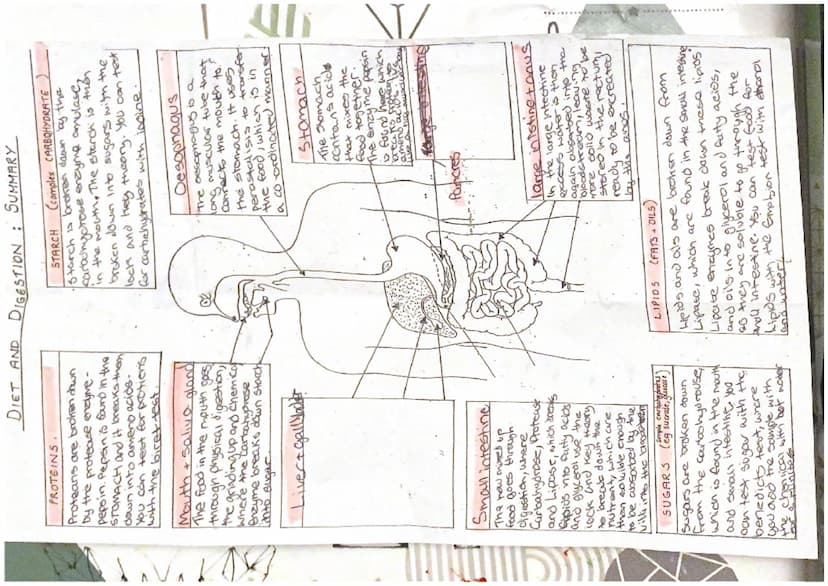 DIET AND DIGESTION : SUMMARY
PROTEINS.
Proteins are broken down
by the protease enzyme -
pepsin. Pepsin is found in the
stomach and it breaks them
down into amino acids.
You can test for proteins
with the biuret test
STARCH (complex CARBOHYDRATE)
Starch is broken down by the
carbohydrase enzyme amylase,
in the mouth. The starch is then
broken down into sugars with the
lock and key theory. You can test
for carbohydrates with iodine.
Mouth + saliva gland
The food in the mouth goes
through physical digestion,
the grinding up and chemical
where the carbohydrase
enzyme breaks down starch
into sugar
Oesophagus
The oesophagus is a
long muscular tube that
connects the mouth to
the stomach. It uses
peristalsis to transfer
the food, which is in
a co ordinated manner
Liver + Gall bladder
Stomach
The Stomach
contains acids
then mixes the
food together.
The enzyme pepsin
is found here which
amino acids
Large intestine
Pancreas
Small intestine
The now mixed up
food goes through
digestion, where
Carbohydrase, Protease
and Lipase, which breaks
lipids into fatty acids
and glycerol use the
lock and key theory
to break down the
nutrients which are
then soluble enough
to be absorbed by the
villi into the bloodstream
large intestine + anus
In the large intestine
excess water is then
again absorbed into the
bloodstream, leaving
more solid waste to be
stored in the rectum,
ready to be excreted
by the anus.
SUGARS (simple carbohydrates) (eg sucrose, glucose)
Sugars are broken down
from the carbohydrase,
which is found in the mouth
and small intestine. You
can test sugar with the
benedicts test, where
you add the sample with
the chemical with hot water
LIPIDS (FATS + OILS)
Lipids and oils are broken down from
Lipase, which are found in the small intestine.
Lipase enzymes break down these lipids
and oils into glycerol and fatty acids,
so they are soluble to go through the
small intestine. You can test food for
lipids with the emulsion test with ethanol
and water.